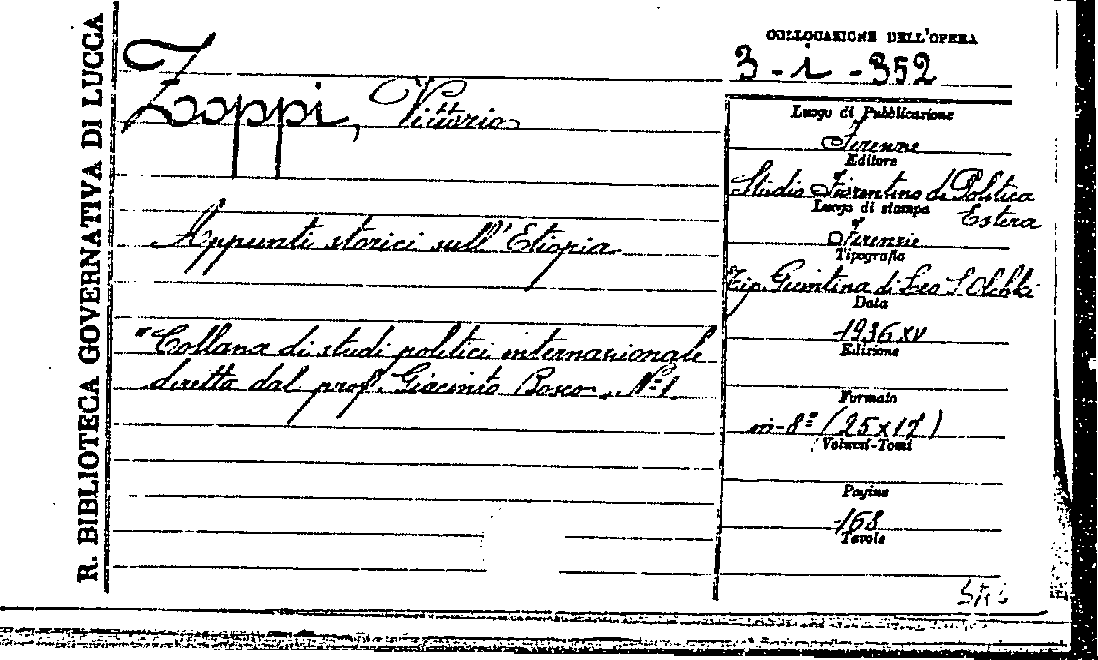 R. BIBLIOTECA GOVERNATIVA DI LUCCA
Zoppi, Vittorio
Appunti storici sull'Etiopia
"Collana di studi politici internazionale
diretta dal prof. Giacinto Bosco. N°1
COLLOCAZIONE DELL'OPERA
3-i-352
Luogo di Pubblicazione
Firenze
Editore
Studio Fiorentino di Politica
Estera
Luogo di stampa
Firenze
Tipografia
Tip. Giuntina di Leo S. Olschki
Data
1936 XV
Edizione
Formato
in-8° (25x17)
Volumi-Tomi
Pagine
168
Tavole